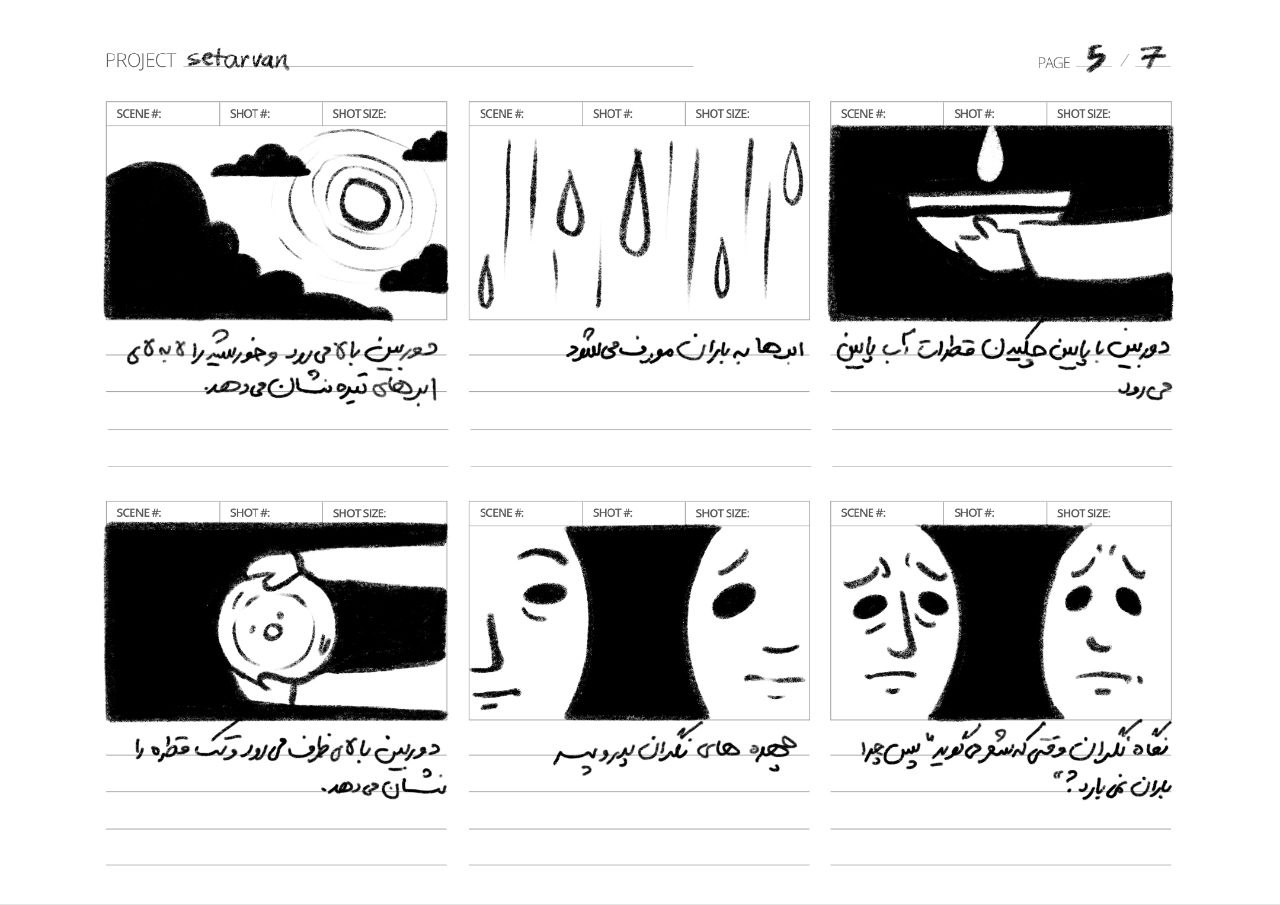 PROJECT setarvan
PAGE 5 / 7
SCENE #: SHOT #: SHOT SIZE:
دوربین بالا می‌رود و خورشید را لا به لای
ابرهای تیره نشان می‌دهد.
SCENE #: SHOT #: SHOT SIZE:
ابرها به باران مورف می‌شود
SCENE #: SHOT #: SHOT SIZE:
دوربین با پایین چکیدن قطرات آب پایین
می‌رود
SCENE #: SHOT #: SHOT SIZE:
دوربین بالای ظرف می‌رود و تک قطره را
نشان می‌دهد.
SCENE #: SHOT #: SHOT SIZE:
چهره های نگران پدر و پسر
SCENE #: SHOT #: SHOT SIZE:
نگاه نگران وقتی که شعر می‌گوید "پس چرا
باران نمی بارد؟"